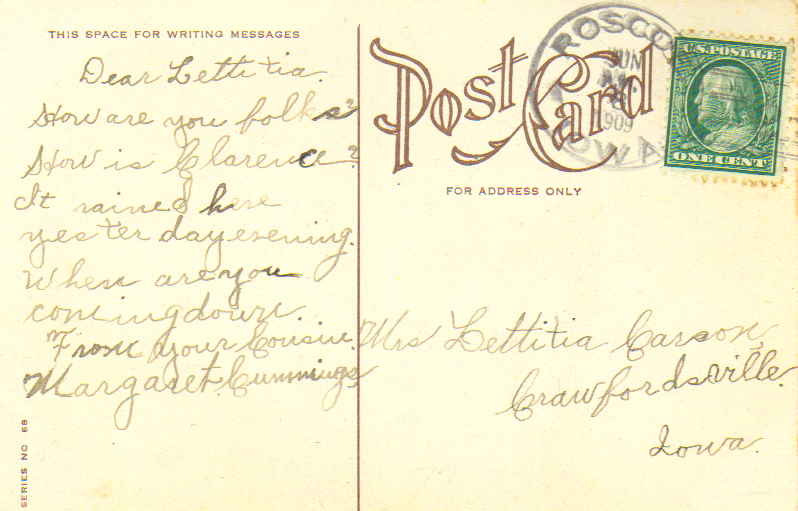 THIS SPACE FOR WRITING MESSAGES
Dear Lettitia.
How are you folks?
How is Clarence?
It rained here
yester day evening.
When are you
coming down.
From your Cousin.
Margaret Cummings
SERIES NO 68
Post Card
FOR ADDRESS ONLY
ROSCO
JUN
1909
IOWA
U.S. POSTAGE
ONE CENT
Mrs Lettitia Carson,
Crawfordsville.
Iowa.